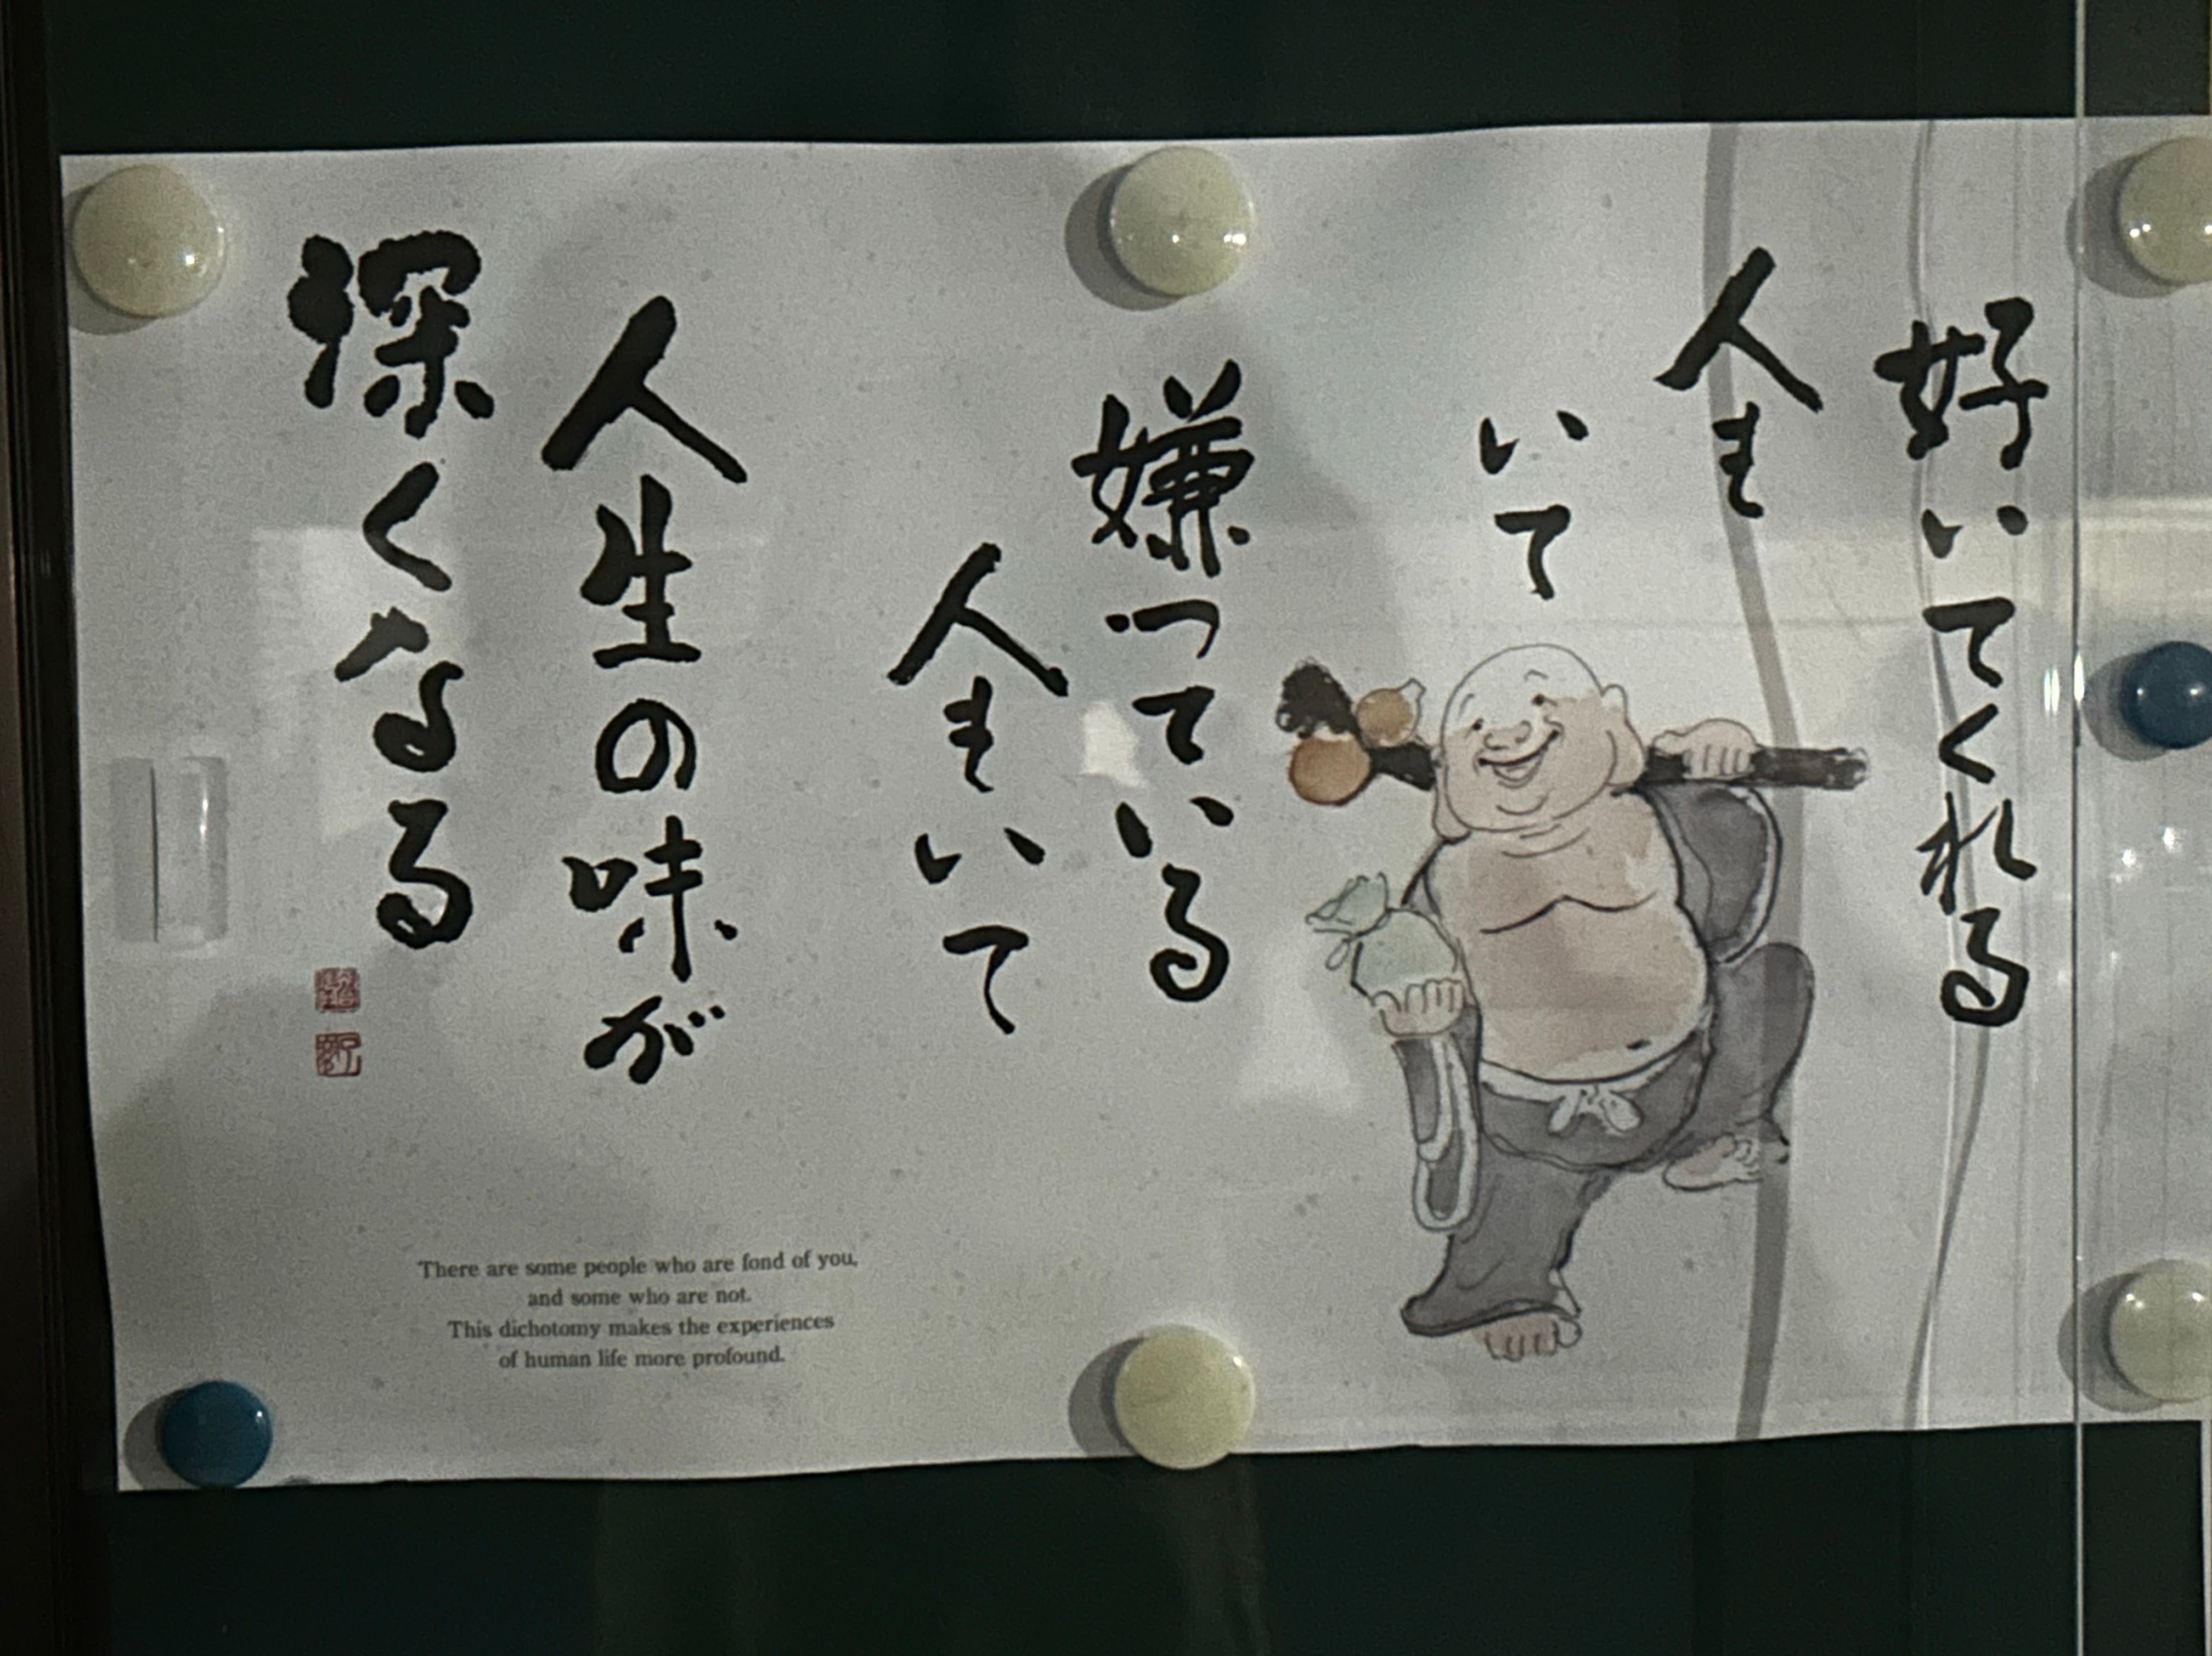 好いてくれる
人も
いて
嫌っている
人もいて
人生の味が
深くなる
There are some people who are fond of you,
and some who are not.
This dichotomy makes the experiences
of human life more profound.